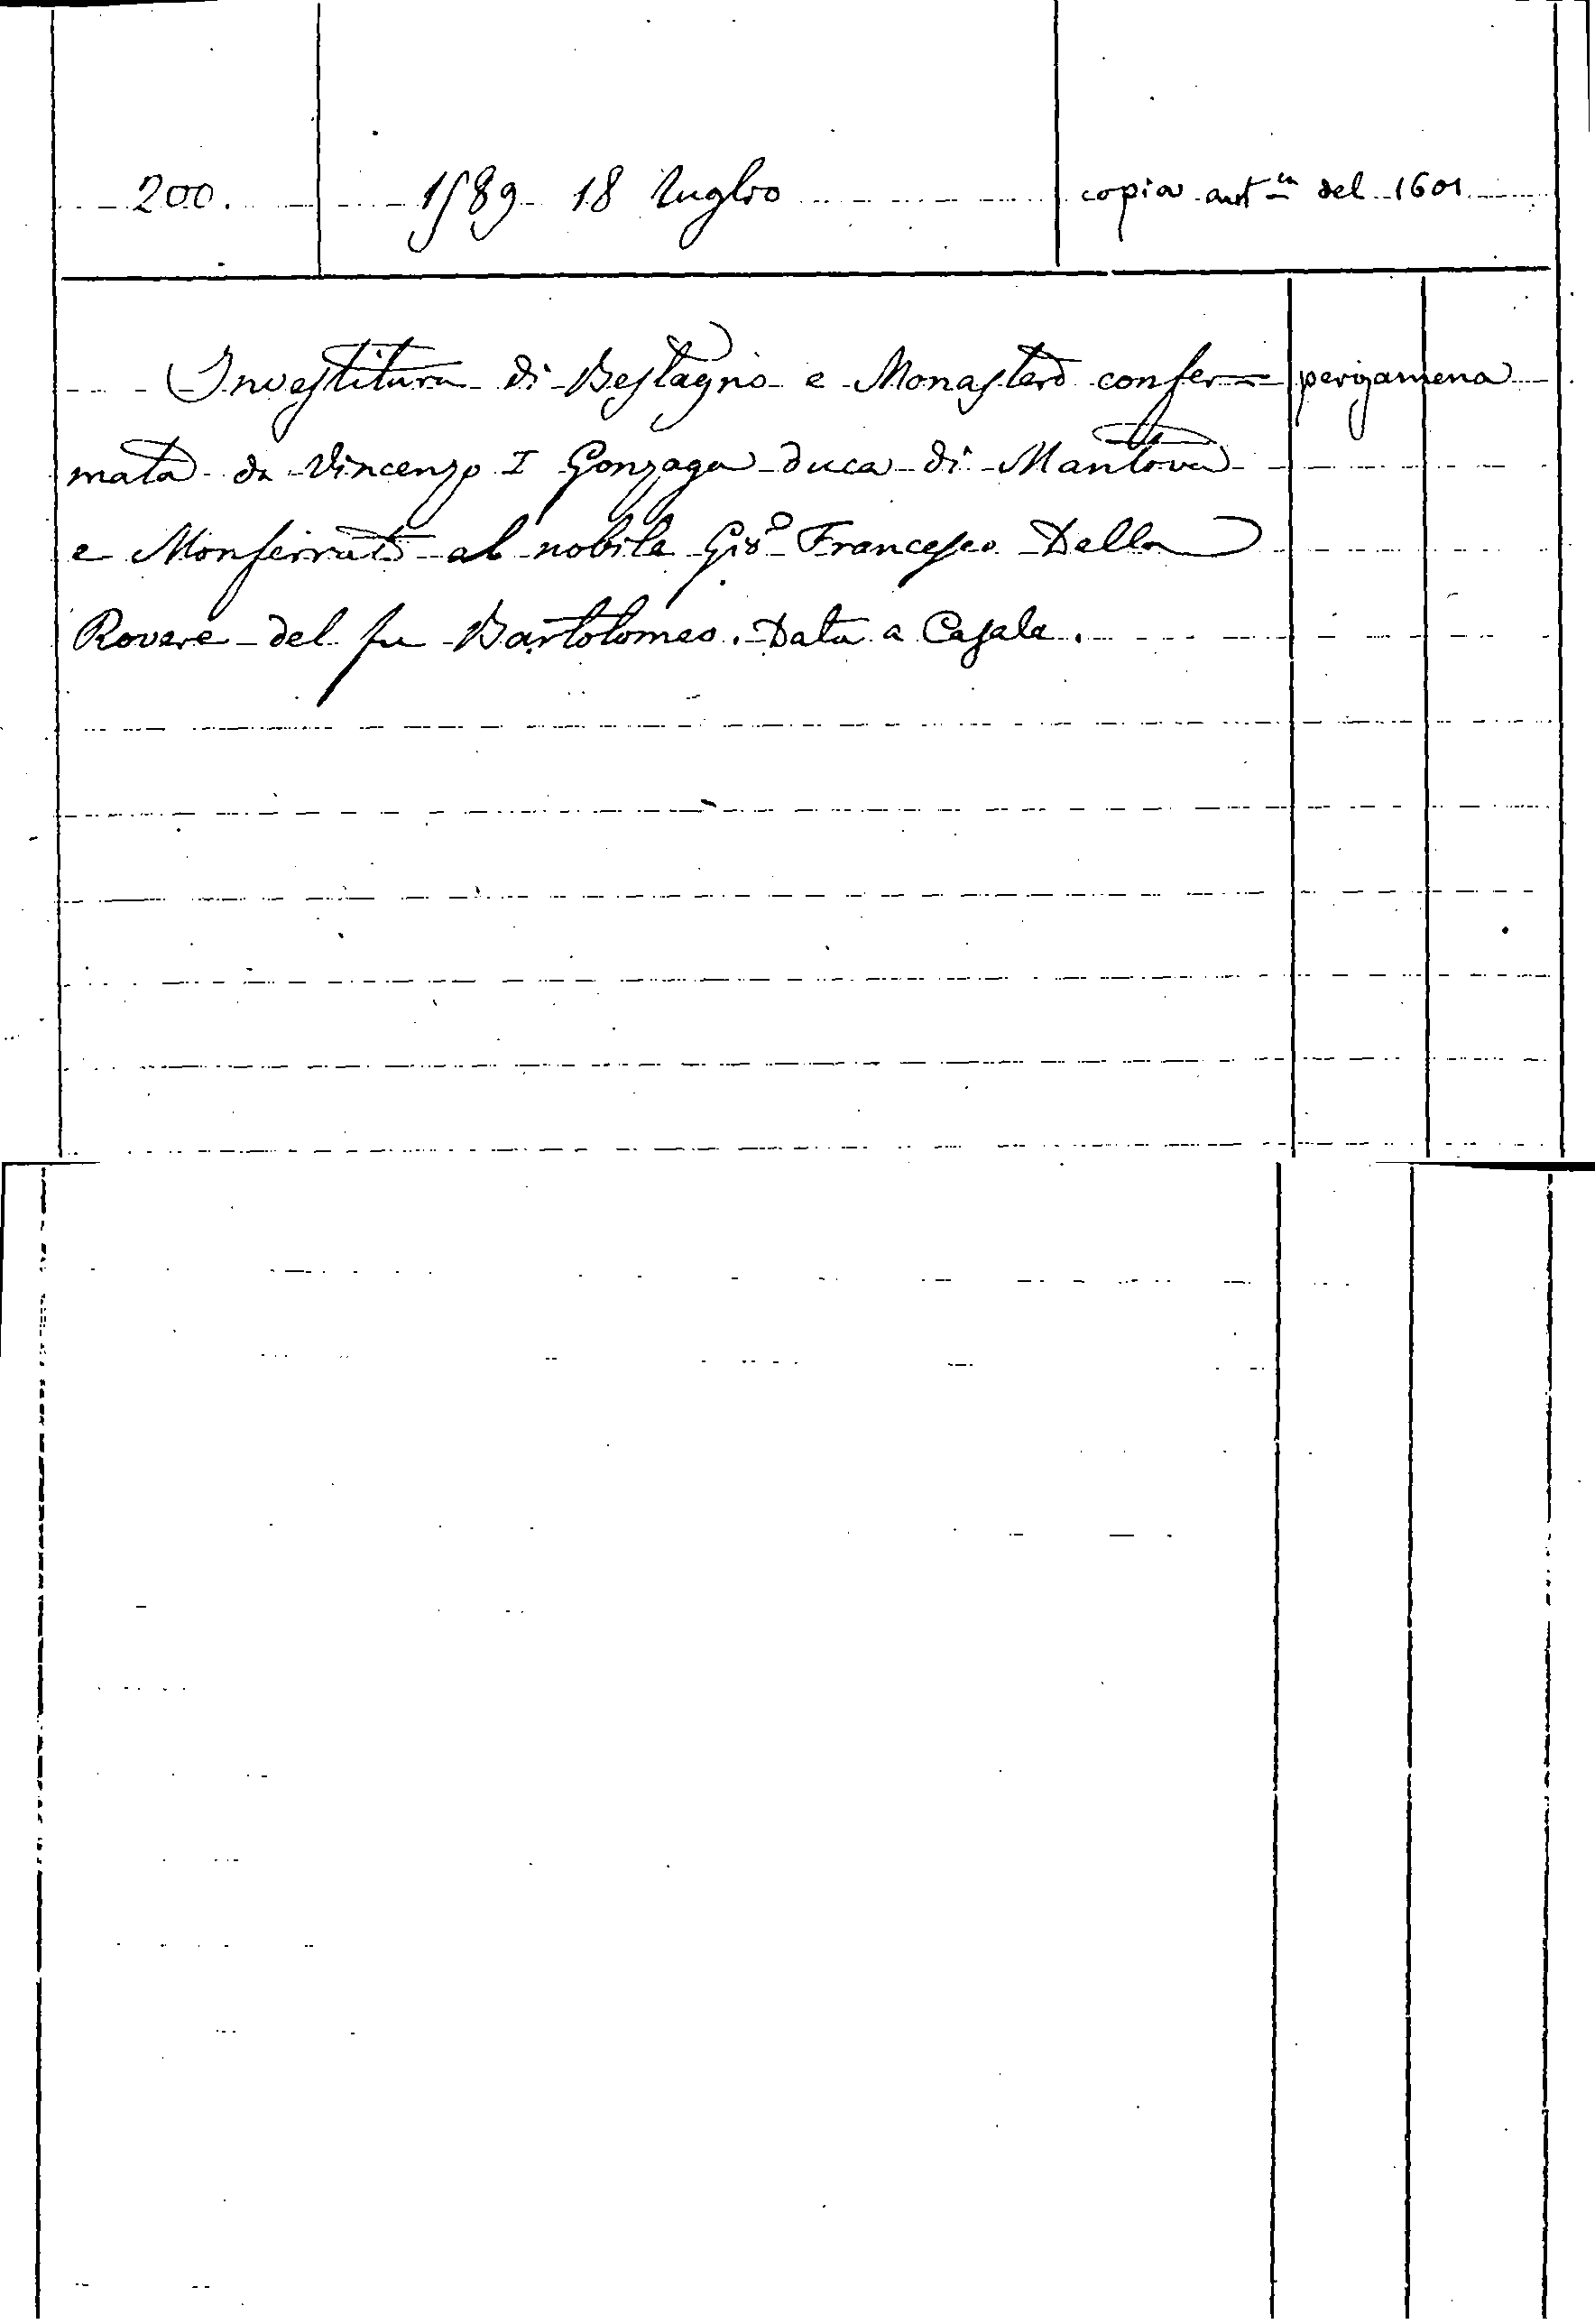 200. 1589 18 luglio copia aut.ca del 1601
Investitura di Bestagno e Monastero confer= pergamena
mata da Vincenzo I Gonzaga duca di Mantova
e Monferrato al nobile Gio. Francesco Della
Rovere del fu Bartolomeo. Data a Casale.